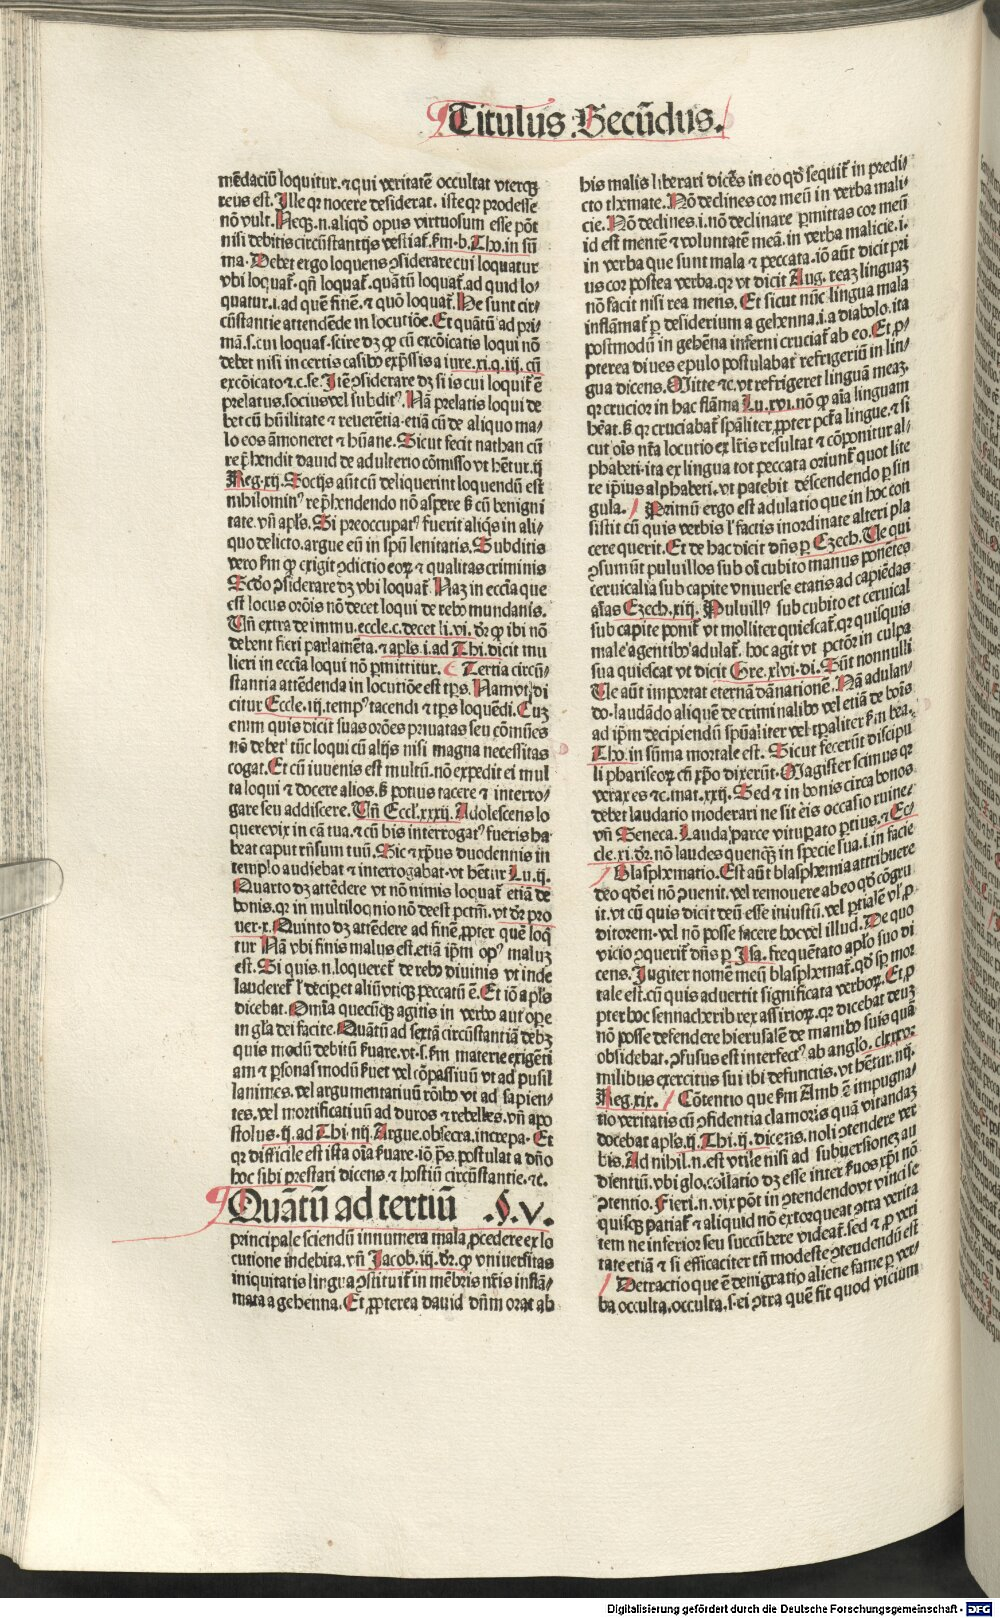 Titulus Secūdus.
mēdaciū loquitur. ⁊ qui veritatē occultat vterqꝫ
reus est. Ille qꝛ nocere desiderat. iste qꝛ prodesse
nō vult. Neqꝫ .n. aliqd̄ opus virtuosum esse pōt
nisi debitis circūstantijs vestiat᷑. ẜm .b. Tho. in sū
ma. Debet ergo loquens ꝯsiderare cui loquatur
vbi loquat᷑. qn̄ loquat᷑. quātū loquat᷑. ad quid lo-
quatur. i. ad quē finē. ⁊ quō loquat᷑. He sunt cir-
cūstantie attendēde in locutiōe. Et quātū ad pri-
mā .s. cui loquat᷑. scire dꝫ ꝙ cū excōicatis loqui nō
debet nisi in certis casibꝰ exp̄ssis a iure. xi. q. iij. cū
excōicato ⁊ c. se. Itē ꝯsiderare dꝫ si is cui loquit᷑ ē
prelatus. socius vel subditꝰ. Nā prelatis loqui de
bet cū hūilitate ⁊ reuerētia. etiā cū de aliquo ma-
lo eos āmoneret ⁊ hūane. Sicut fecit nathan cū
rep̄hendit dauid de adulterio cōmisso vt hētur. ij
Reg. xij. Socijs aūt cū deliquerint loquendū est
nihilominꝰ rep̄hendendo nō aspere ß cū benigni
tate. vn̄ apl̄s. Si preoccupatꝰ fuerit aliqs in ali-
quo delicto. argue eū in spū lenitatis. Subditis
vero ẜm ꝙ exigit ꝯdictio eoꝝ ⁊ qualitas criminis
Scd̄o ꝯsiderare dꝫ vbi loquat᷑. Naꝫ in ecc̄ia que
est locus orōis nō decet loqui de rebꝰ mundanis.
Un̄ extra de immu. eccle. c. decet li. vi. dr̄ ꝙ ibi nō
debent fieri parlamēta. ⁊ apl̄s .i. ad Thi. dicit mu
lieri in ecc̄ia loqui nō ꝑmittitur. ¶ Tertia circū-
stantia attēdenda in locutiōe est tp̄s. Nam vt di
citur Eccle. iij. tempꝰ tacendi ⁊ tp̄s loquēdi. Cuꝫ
enim quis dicit suas orōes priuatas seu cōmūes
nō debet tūc loqui cū alijs nisi magna necessitas
cogat. Et cū iuuenis est multū. nō expedit ei mul
ta loqui ⁊ docere alios. ß potius tacere ⁊ interro-
gare seu addiscere. Un̄ Eccl. xxxij. Adolescens lo
quere vix in cā tua. ⁊ cū bis interrogatꝰ fueris ha
beat caput rn̄sum tuū. Sic ⁊ xp̄us duodennis in
templo audiebat ⁊ interrogabat. vt hētur Lu. ij.
Quarto dꝫ attēdere vt nō nimis loquat᷑ etiā de
bonis. qꝛ in multiloquio nō deest pctm̄. vt dr̄ pro
uer. x. Quinto dꝫ attēdere ad finē ꝓpter quē loq̄
tur Nā vbi finis malus est. etiā ip̄m opꝰ maluꝫ
est. Si quis .n. loqueret᷑ de rebꝰ diuinis vt inde
lauderet᷑ l̓ deciperet aliū vtiqꝫ peccatū ē. Et iō apl̄s
dicebat. Omīa quecūqꝫ agitis in verbo aut ope
in gl̄a dei facite. Quātū ad sextā circūstantiā debꝫ
quis modū debitū ẜuare. vt .s. ẜm materie exigēti
am ⁊ ꝑsonas modū ẜuet vel cōpassiuū vt ad pusil
lanimes. vel argumentatiuū rōibꝰ vt ad sapien-
tes. vel mortificatiuū ad duros ⁊ rebelles. vn̄ apo
stolus .ij. ad Thi. iiij. Argue. obsecra. increpa. Et
qꝛ difficile est ista oīa ẜuare. iō p̄s. postulat a dn̄o
hoc sibi prestari dicens ⁊ hostiū circūstantie. ⁊c.
Quātū ad tertiū .§.v.
principale sciendū innumera mala ꝓcedere ex lo
cutione indebita. vn̄ Jacob. iij. dr̄. ꝙ vniuersitas
iniquitatis lingua ꝯstituit᷑ in mēbris nr̄is inflā-
mata a gehenna. Et ꝓpterea dauid dn̄m orat ab
his malis liberari dicēs in eo qd̄ sequit᷑ in predi-
cto themate. Nō declines cor meū in verba mali-
cie. Nō declines .i. nō declinare ꝑmittas cor meū
id est mentē ⁊ voluntatē meā. in verba malicie. i.
in verba que sunt mala ⁊ peccata. iō aūt dicit pri
us cor postea verba. qꝛ vt dicit Aug. reaꝫ linguaꝫ
nō facit nisi rea mens. Et sicut nūc lingua mala
inflāmat᷑ ꝑ desiderium a gehenna .i. a diabolo. ita
postmodū in gehēna inferni cruciat᷑ ab eo. Et ꝓ-
pterea diues epulo postulabat refrigeriū in lin-
gua dicens. Mitte ⁊c. vt refrigeret linguā meaꝫ.
qꝛ crucior in hac flāma Lu. xvi. nō ꝙ aīa linguam
hēat. ß qꝛ cruciabat᷑ spāliter ꝓpter pctā lingue. ⁊ si
cut oīs nr̄a locutio ex lr̄is resultat ⁊ cōponitur al-
phabeti. ita ex lingua tot peccata oriunt᷑ quot lite
re ip̄ius alphabeti. vt patebit descendendo ꝑ sin
gula. Primū ergo est adulatio que in hoc con
sistit cū quis verbis l̓ factis inordinate alteri pla
cere querit. Et de hac dicit dn̄s ꝑ Ezech. Ue qui
ꝯsuūt puluillos sub oī cubito manus ponētes
ceruicalia sub capite vniuerse etatis ad capiēdas
aīas Ezech. xiij. Puluillꝰ sub cubito et ceruical
sub capite ponit᷑ vt molliter quiescat᷑. qꝛ quisquis
male agentibꝰ adulat᷑. hoc agit vt pctōr in culpa
sua quiescat vt dicit Gre. xlvi. di. Sūt nonnulli
Ue aūt importat eternā dānationē. Nā adulan-
do. laudādo aliquē de criminalibꝰ vel etiā de boīs
ad ip̄m decipiendū spūaliter vel tp̄aliter ẜm bea.
Tho. in sūma mortale est. Sicut fecerūt discipu
li phariseoꝝ cū xp̄o dixerūt. Magister scimus qꝛ
verax es ⁊c. mat. xxij. Sed ⁊ in bonis circa bonos
debet laudatio moderari ne sit eis occasio ruine.
vn̄ Seneca. Lauda parce vituꝑato ꝑtius. ⁊ Ec-
cle. xi. dr̄. nō laudes quenqꝫ in specie sua .i. in facie
Blasphematio. Est aūt blasphemia attribuere
deo qd̄ ei nō ꝯuenit. vel remouere ab eo qd̄ cōgru
it. vt cū quis dicit deū esse iniustū. vel ꝑtialē vl̓ ꝓ
ditorem. vel nō posse facere hoc vel illud. De quo
vicio ꝯquerit᷑ dn̄s ꝑ Isa. frequētato aplō suo di
cens. Jugiter nomē meū blasphemat᷑. qd̄ sꝑ mor
tale est. cū quis aduertit significata verboꝝ. Et ꝓ
pter hoc sennacherib rex assirioꝝ. qꝛ dicebat deuꝫ
nō posse defendere hierusalē de manibꝰ suis quā
obsidebat. ꝯfusus est interfectꝰ ab anglo. clxxxv.
milibus exercitus sui ibi defunctis. vt hētur. iiij.
Reg. xix. Cōtentio que ẜm Amb ē impugna-
tio veritatis cū ꝯfidentia clamoris quā vitandaꝫ
docebat apl̄s. ij. Thi. ij. dicens. noli ꝯtendere ver
bis. Ad nihil .n. est vtile nisi ad subuersioneꝫ au
dientiū. vbi glo. collatio dꝫ esse inter ẜuos xp̄i nō
ꝯtentio. Fieri .n. vix pōt in ꝯtendendo vt vinci se
quisqꝫ patiat᷑ ⁊ aliquid nō extorqueat ꝯtra verita
tem ne inferior seu succūbere videat᷑. sed ⁊ ꝓ veri
tate etiā ⁊ si efficaciter tn̄ modeste ꝯtendendū est
Detractio que ē denigratio aliene fame ꝑ ver-
ba occulta. occulta .s. ei ꝯtra quē fit quod vicium
Digitalisierung gefördert durch die Deutsche Forschungsgemeinschaft - DFG